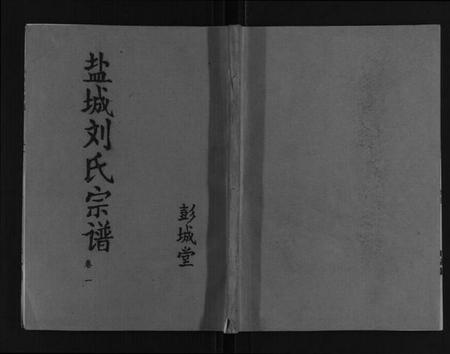 盐城刘氏宗谱 卷一
彭城堂